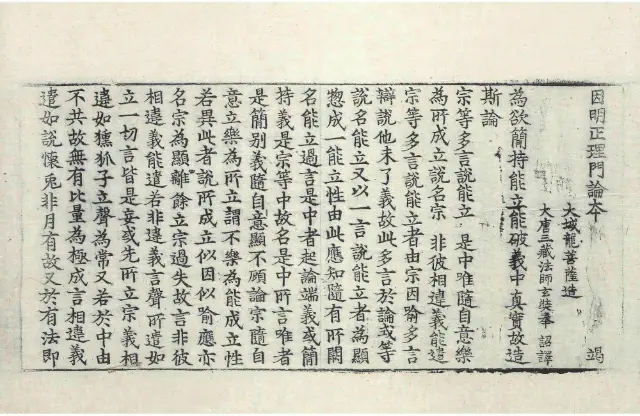 因明正理門論本 竭
大域龍菩薩造
大唐三藏法師玄奘奉 詔譯
為欲簡持能立能破義中真實故造
斯論
宗等多言說能立 是中唯隨自意樂
為所成立說名宗 非彼相違義能遣
宗等多言說能立者由宗因喻多言
辯說他未了義故此多言於論式等
說名能立又以一言說能立者為顯
惣成一能立性由此應知隨有所闕
名能立過言是中者起論端義或簡
持義是宗等中故名是中所言唯者
是簡別義隨自意顯不顧論宗隨自
意立樂為所立謂不樂為能成立性
若異此者說所成立似因似喻應亦
名宗為顯離餘立宗過失故言非彼
相違義能遣若非違義言聲所遣如
立一切言皆是妄或先所立宗義相
違如獯狐子立聲為常又若於中由
不共故無有比量為極成言相違義
遣如說懷兔非月有故又於有法即